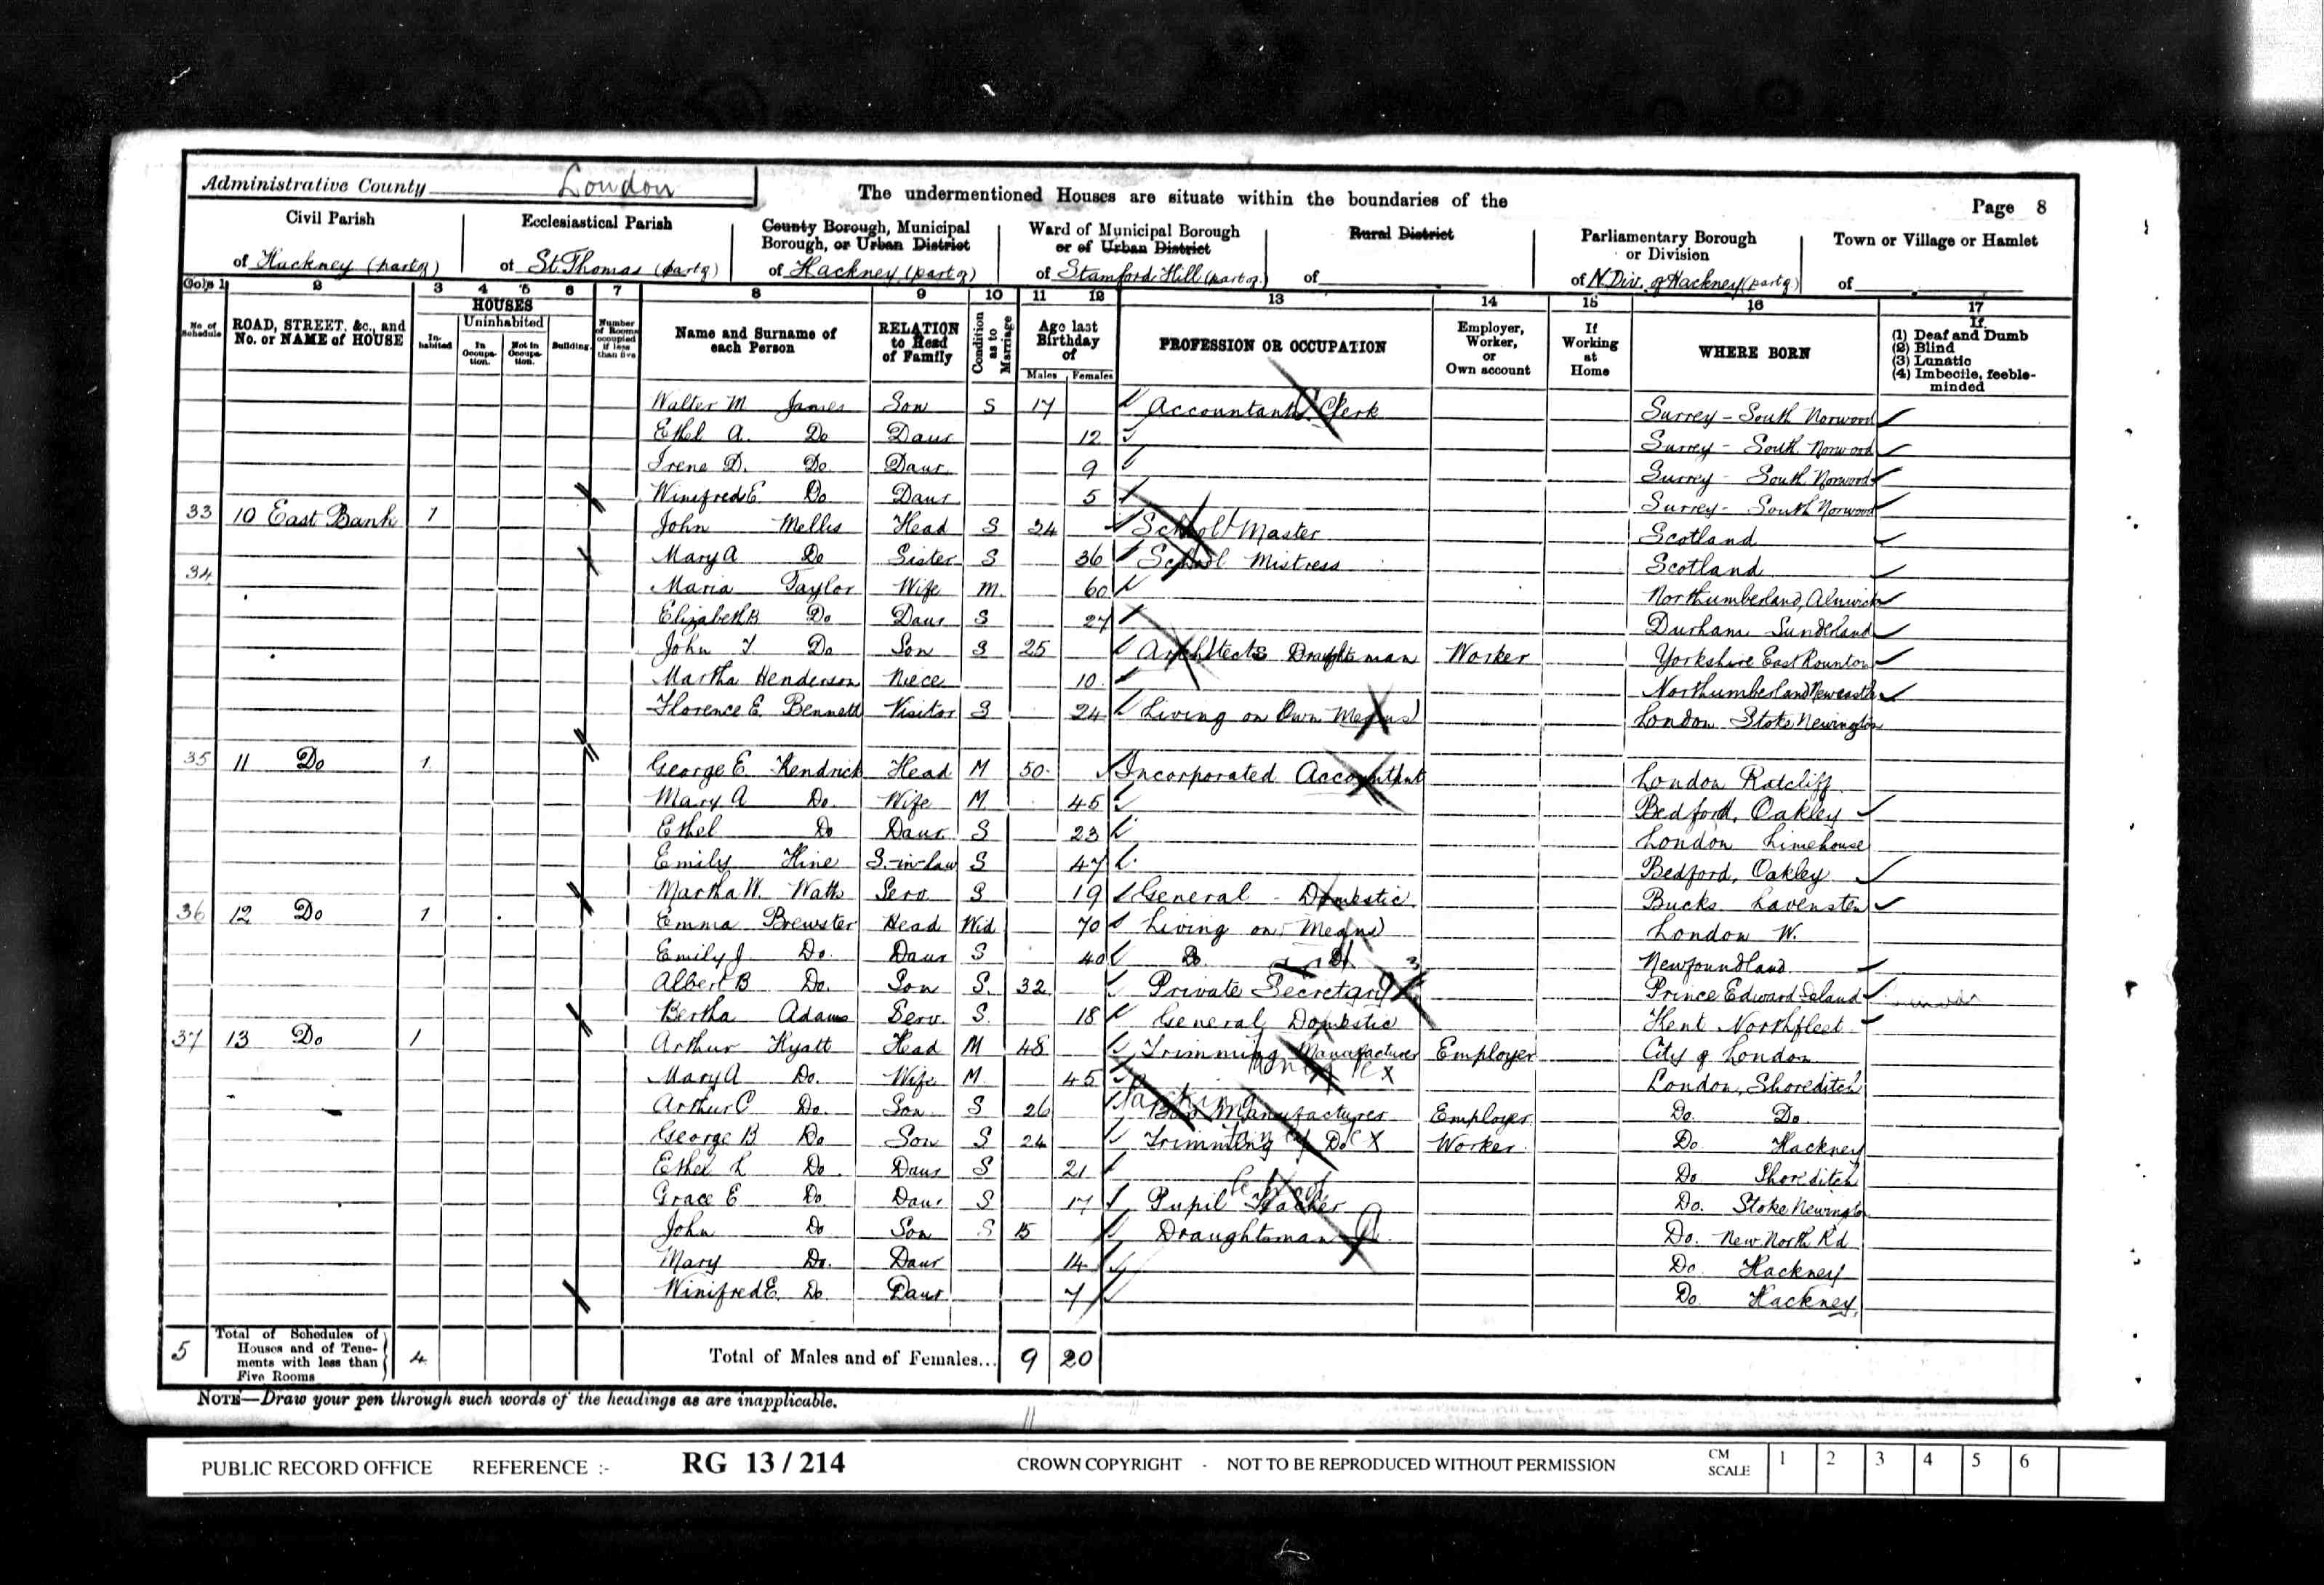 Administrative County London The undermentioned Houses are situate within the boundaries of the Page 8
Civil Parish of Hackney (part of)
Ecclesiastical Parish of St. Thomas (part of)
County Borough, Municipal Borough, or Urban District of Hackney (part of)
Ward of Municipal Borough or of Urban District of Stamford Hill (part of)
Rural District of
Parliamentary Borough or Division of N Div. of Hackney (part of)
Town or Village or Hamlet of
Cols 1 2 3 4 5 6 7 8 9 10 11 12 13 14 15 16 17
No. of Schedule
ROAD, STREET, &c., and No. or NAME of HOUSE
HOUSES
Inhabited
Uninhabited
In Occupation.
Not in Occupation.
Building.
Number of Rooms occupied if less than five
Name and Surname of each Person
RELATION to Head of Family
Condition as to Marriage
Age last Birthday of
Males Females
PROFESSION OR OCCUPATION
Employer, Worker, or Own account
If Working at Home
WHERE BORN
If
(1) Deaf and Dumb
(2) Blind
(3) Lunatic
(4) Imbecile, feeble-minded
Walter M James Son S 17 Accountants Clerk Surrey - South Norwood
Ethel A. Do Daur 12 Surrey - South Norwood
Irene D. Do Daur 9 Surrey - South Norwood
Winifred E Do Daur 5 Surrey - South Norwood
33 10 East Bank 1 John Mellis Head S 34 School Master Scotland
Mary A Do Sister S 36 School Mistress Scotland
34 Maria Taylor Wife M. 60 Northumberland, Alnwick
Elizabeth B Do Daur S 27 Durham Sunderland
John T Do Son S 25 Architects Draughtsman Worker Yorkshire East Rounton
Martha Henderson Niece 10 Northumberland Newcastle
Florence E. Bennett Visitor S 24 Living on Own Means London Stoke Newington
35 11 Do 1 George E. Kendrick Head M 50 Incorporated Accountant London Ratcliff
Mary A Do. Wife M 45 Bedford, Oakley
Ethel Do Daur S 23 London Limehouse
Emily Hine S.-in-law S 47 Bedford, Oakley
Martha W. Watts Serv. S 19 General - Domestic Bucks. Lavensten
36 12 Do 1 Emma Brewster Head Wid 70 Living on Means London W.
Emily J Do. Daur S 40 Do. Do. Newfoundland
Albert B Do. Son S. 32 Private Secretary Prince Edward Island
Bertha Adams Serv. S. 18 General Domestic Kent Northfleet
37 13 Do 1 Arthur Hyatt Head M 48 Trimming Manufacturer Employer City of London
Mary A Do. Wife M. 45 London, Shoreditch
Arthur C Do. Son S 26 Box Manufacturer Employer Do. Do.
George B Do Son S 24 Trimming Do Worker Do Hackney
Ethel L Do. Daur S 21 Do Shoreditch
Grace E Do. Daur S 17 Pupil Teacher Do. Stoke Newington
John Do Son S 15 Draughtsman Do. New North Rd
Mary Do. Daur 14 Do Hackney
Winifred E. Do Daur 7 Do. Hackney
5 Total of Schedules of Houses and of Tenements with less than Five Rooms 4 Total of Males and of Females... 9 20
NOTE—Draw your pen through such words of the headings as are inapplicable.
PUBLIC RECORD OFFICE REFERENCE :- RG 13/214 CROWN COPYRIGHT - NOT TO BE REPRODUCED WITHOUT PERMISSION CM SCALE 1 2 3 4 5 6